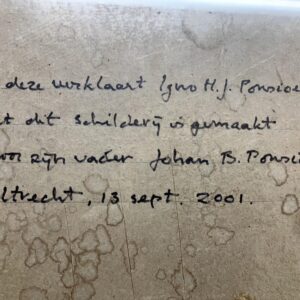 deze verklaart Igno H.J. Ponsioe
t dit schilderij is gemaakt
oor zijn vader Johan B. Ponsi
Utrecht, 13 sept. 2001.